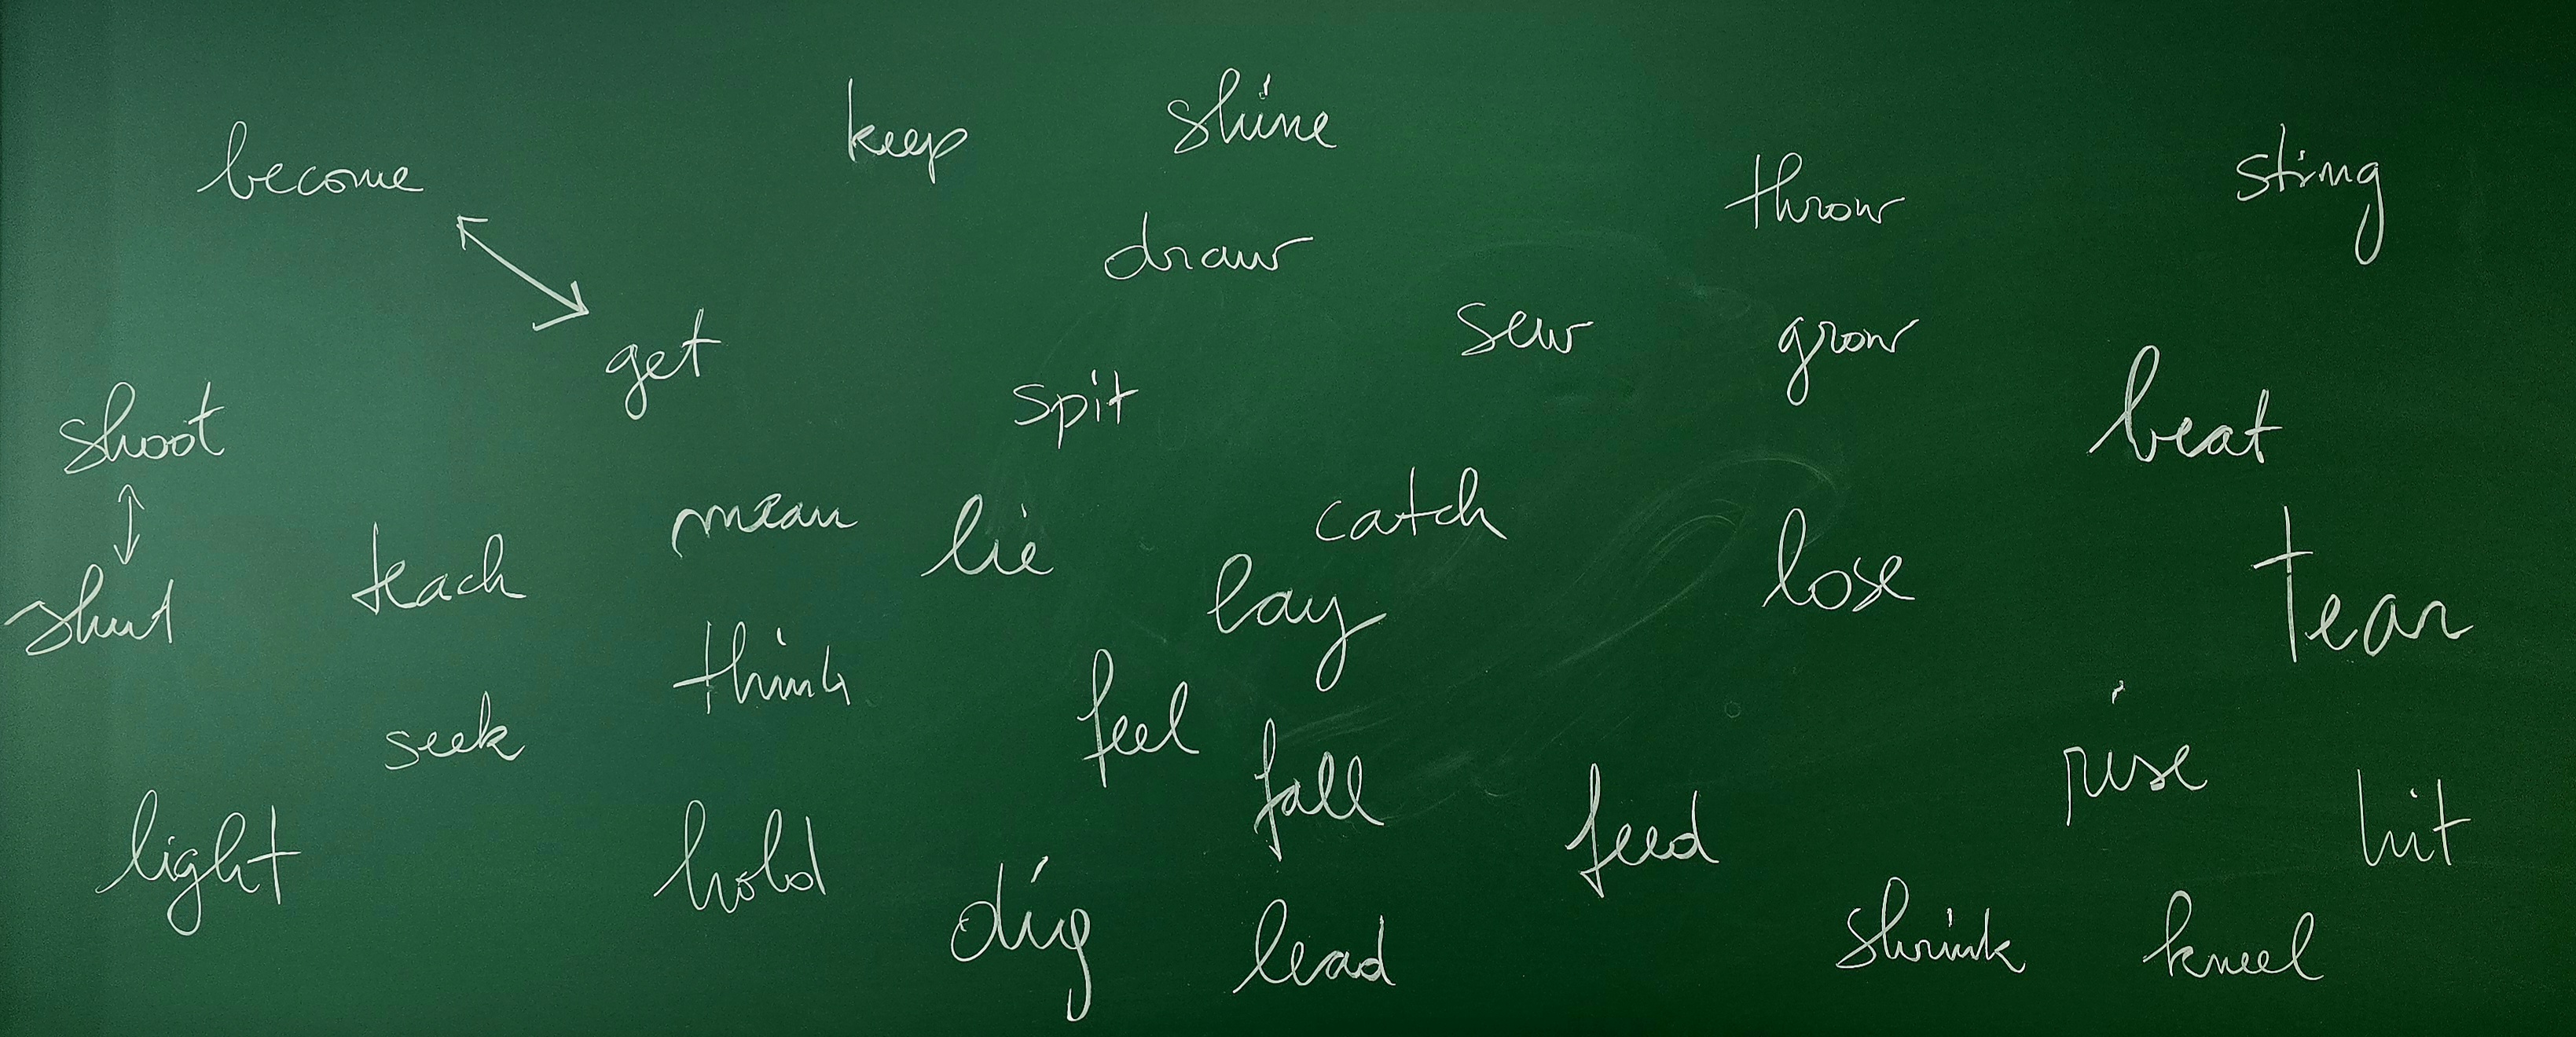 become
keep
shine
throw
sting
draw
get
sew
grow
spit
shoot
beat
mean
lie
catch
teach
lay
lose
tear
shut
think
seek
feel
fall
rise
light
hold
feed
hit
dig
lead
shrink
kneel